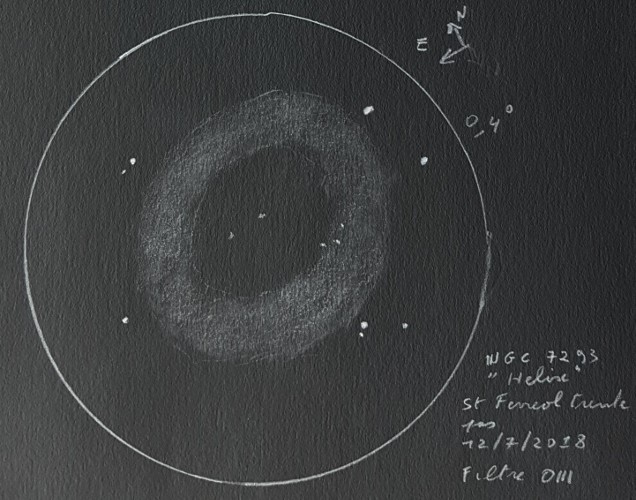 N
E
0,4°
NGC 7293
"Helix"
St Ferreol Trente
pas
12/7/2018
Filtre OIII